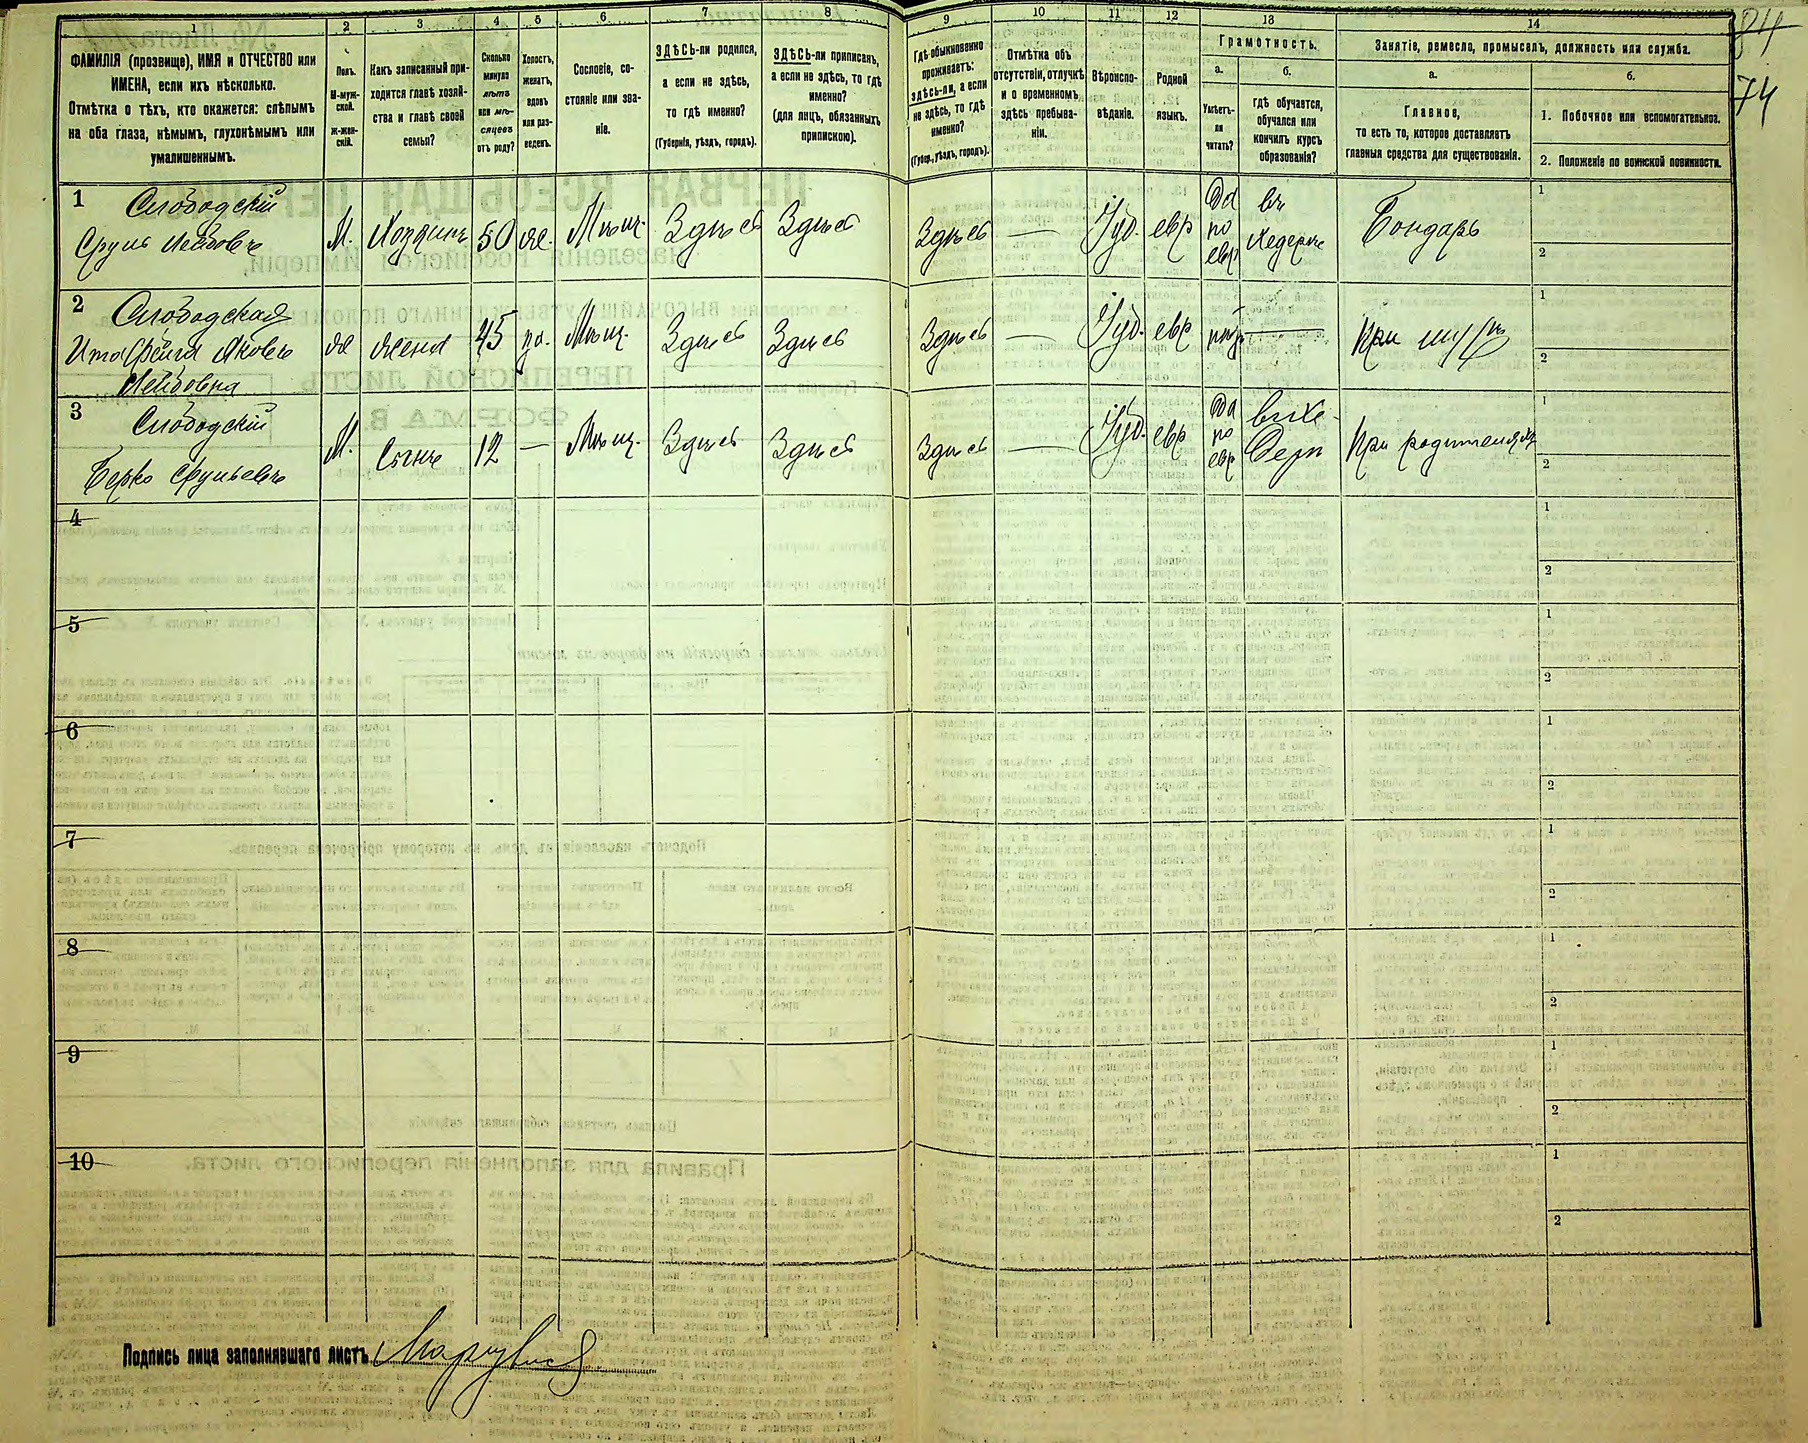 1 2 3 4 5 6 7 8 9 10 11 12 13 14
84
74
ФАМИЛІЯ (прозвище), ИМЯ и ОТЧЕСТВО или
ИМЕНА, если ихъ нѣсколько.
Отмѣтка о тѣхъ, кто окажется: слѣпымъ
на оба глаза, нѣмымъ, глухонѣмымъ или
умалишеннымъ.
Полъ.
М-муж-
ской.
Ж-жен-
скій.
Какъ записанный при-
ходится главѣ хозяй-
ства и главѣ своей
семьи?
Сколько
минуло
лѣтъ
или мѣ-
сяцевъ
отъ роду?
Холостъ,
женатъ,
вдовъ
или раз-
веденъ.
Сословіе, со-
стояніе или зва-
ніе.
ЗДѢСЬ-ли родился,
а если не здѣсь,
то гдѣ именно?
(Губернія, уѣздъ, городъ).
ЗДѢСЬ-ли приписанъ,
а если не здѣсь, то гдѣ
именно?
(для лицъ, обязанныхъ
припискою).
Гдѣ обыкновенно
проживаетъ:
здѣсь-ли, а если
не здѣсь, то гдѣ
именно?
(Губер., уѣздъ, городъ).
Отмѣтка объ
отсутствіи, отлучкѣ
и о временномъ
здѣсь пребыва-
ніи.
Вѣроиспо-
вѣданіе.
Родной
языкъ.
Грамотность.
а.
Умѣетъ-
ли
читать?
б.
гдѣ обучается,
обучался или
кончилъ курсъ
образованія?
Занятіе, ремесло, промыселъ, должность или служба.
а.
Главное,
то есть то, которое доставляетъ
главныя средства для существованія.
б.
1. Побочное или вспомогательное.
2. Положеніе по воинской повинности.
1 Слободскій
Сруль Лейбовъ М. Хозяинъ 50 же. Мѣщ. Здѣсь Здѣсь Здѣсь — Іуд. евр Да по евр въ Хедерѣ Бондарь 1 2
2 Слободская
Ита Фейга Яковъ
Лейбовна ж жена 45 за. Мѣщ. Здѣсь Здѣсь Здѣсь — Іуд. евр — При 1 2
3 Слободскій
Берко Срульевъ М. Сынъ 12 — Мѣщ. Здѣсь Здѣсь Здѣсь — Іуд. евр Да по евр въ хе-
дерѣ При родителяхъ 1 2
4 1 2
5 1 2
6 1 2
7 1 2
8 1 2
9 1 2
10 1 2
Подпись лица заполнявшаго листъ